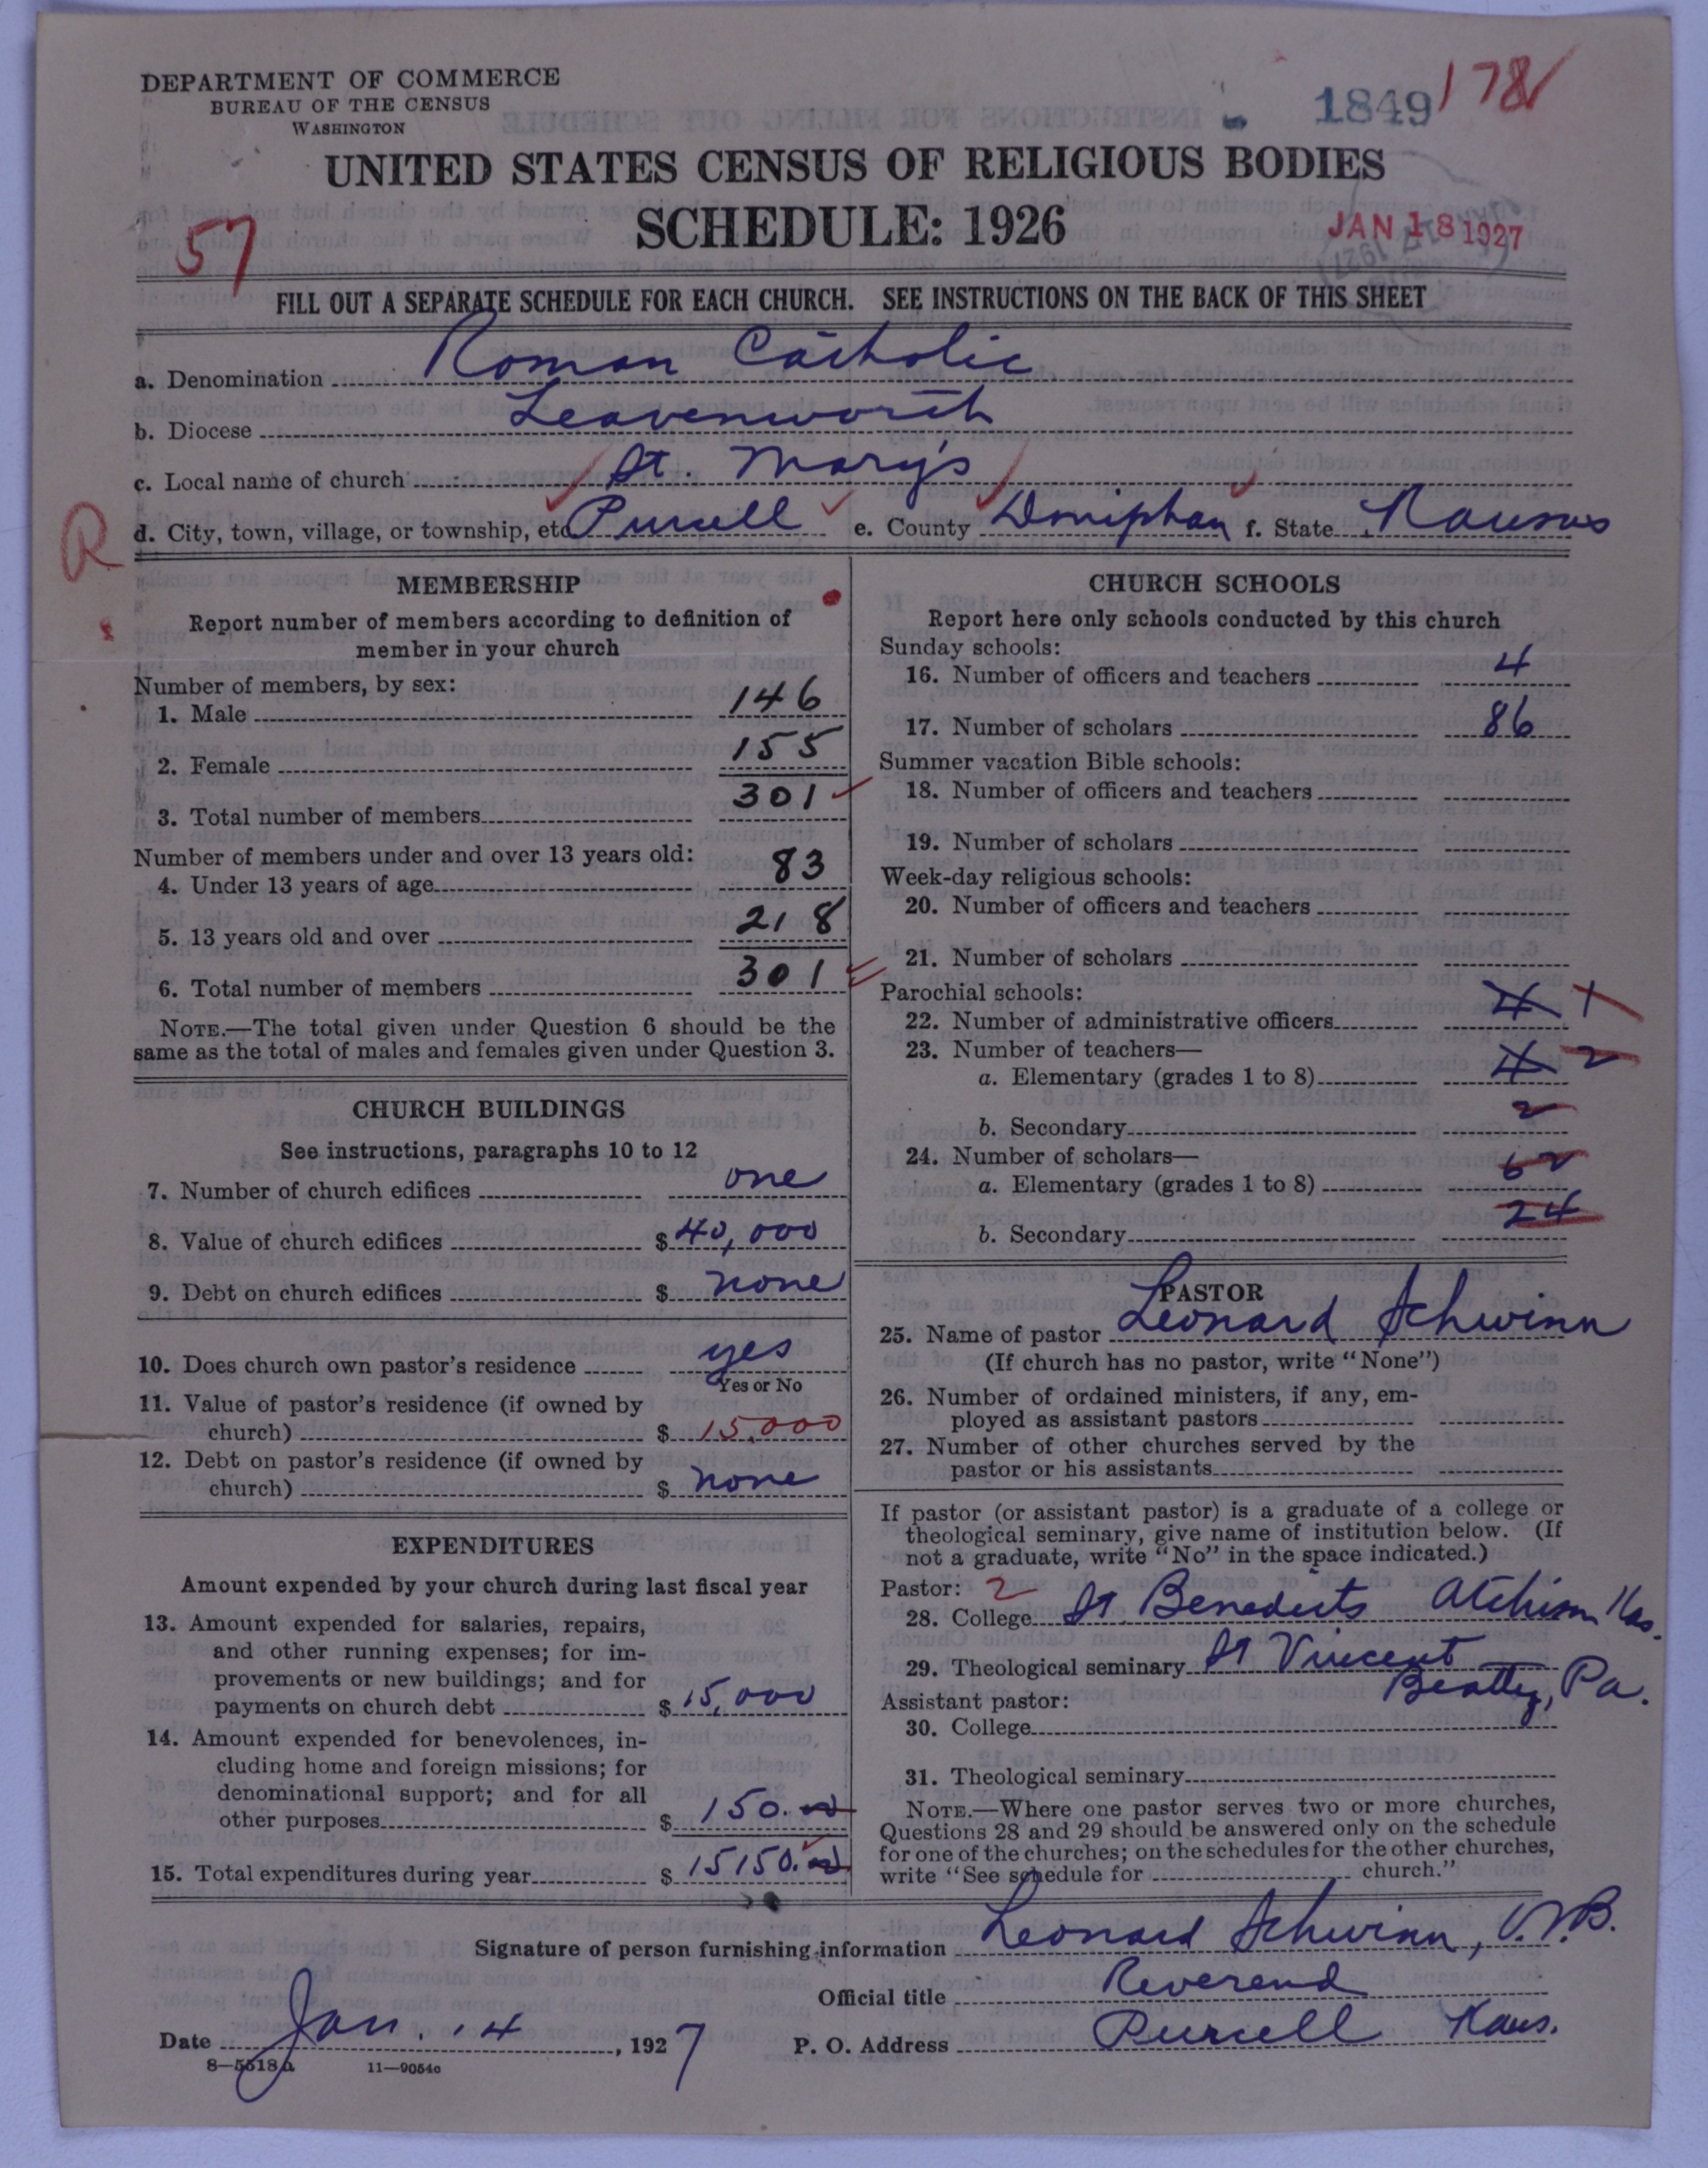 DEPARTMENT OF COMMERCE
BUREAU OF THE CENSUS
WASHINGTON
1849
178
UNITED STATES CENSUS OF RELIGIOUS BODIES
SCHEDULE: 1926
57
JAN 18 1927
FILL OUT A SEPARATE SCHEDULE FOR EACH CHURCH. SEE INSTRUCTIONS ON THE BACK OF THIS SHEET
a. Denomination Roman Catholic
b. Diocese Leavenworth
c. Local name of church St. Mary's
R
d. City, town, village, or township, etc. Purcell e. County Doniphan f. State Kansas
MEMBERSHIP
Report number of members according to definition of
member in your church
Number of members, by sex:
1. Male 146
2. Female 155
3. Total number of members 301
Number of members under and over 13 years old:
4. Under 13 years of age 83
5. 13 years old and over 218
6. Total number of members 301
NOTE.—The total given under Question 6 should be the
same as the total of males and females given under Question 3.
CHURCH BUILDINGS
See instructions, paragraphs 10 to 12
7. Number of church edifices one
8. Value of church edifices $ 40,000
9. Debt on church edifices $ none
10. Does church own pastor's residence yes
Yes or No
11. Value of pastor's residence (if owned by
church) $ 15,000
12. Debt on pastor's residence (if owned by
church) $ none
EXPENDITURES
Amount expended by your church during last fiscal year
13. Amount expended for salaries, repairs,
and other running expenses; for im-
provements or new buildings; and for
payments on church debt $ 15,000
14. Amount expended for benevolences, in-
cluding home and foreign missions; for
denominational support; and for all
other purposes $ 150.00
15. Total expenditures during year $ 15150.00
CHURCH SCHOOLS
Report here only schools conducted by this church
Sunday schools:
16. Number of officers and teachers 4
17. Number of scholars 86
Summer vacation Bible schools:
18. Number of officers and teachers
19. Number of scholars
Week-day religious schools:
20. Number of officers and teachers
21. Number of scholars
Parochial schools:
22. Number of administrative officers 4 1
23. Number of teachers—
a. Elementary (grades 1 to 8) 4 2
b. Secondary 2
24. Number of scholars—
a. Elementary (grades 1 to 8) 62
b. Secondary 24
PASTOR
25. Name of pastor Leonard Schwinn
(If church has no pastor, write "None")
26. Number of ordained ministers, if any, em-
ployed as assistant pastors
27. Number of other churches served by the
pastor or his assistants
If pastor (or assistant pastor) is a graduate of a college or
theological seminary, give name of institution below. (If
not a graduate, write "No" in the space indicated.)
Pastor: 2
28. College St Benedicts Atchison Kas.
29. Theological seminary St Vincent
Beatty, Pa.
Assistant pastor:
30. College
31. Theological seminary
NOTE.—Where one pastor serves two or more churches,
Questions 28 and 29 should be answered only on the schedule
for one of the churches; on the schedules for the other churches,
write "See schedule for church."
Signature of person furnishing information Leonard Schwinn, O.S.B.
Official title Reverend
Date Jan. 14, 1927 P. O. Address Purcell Kans.
8—5518a 11—9054c